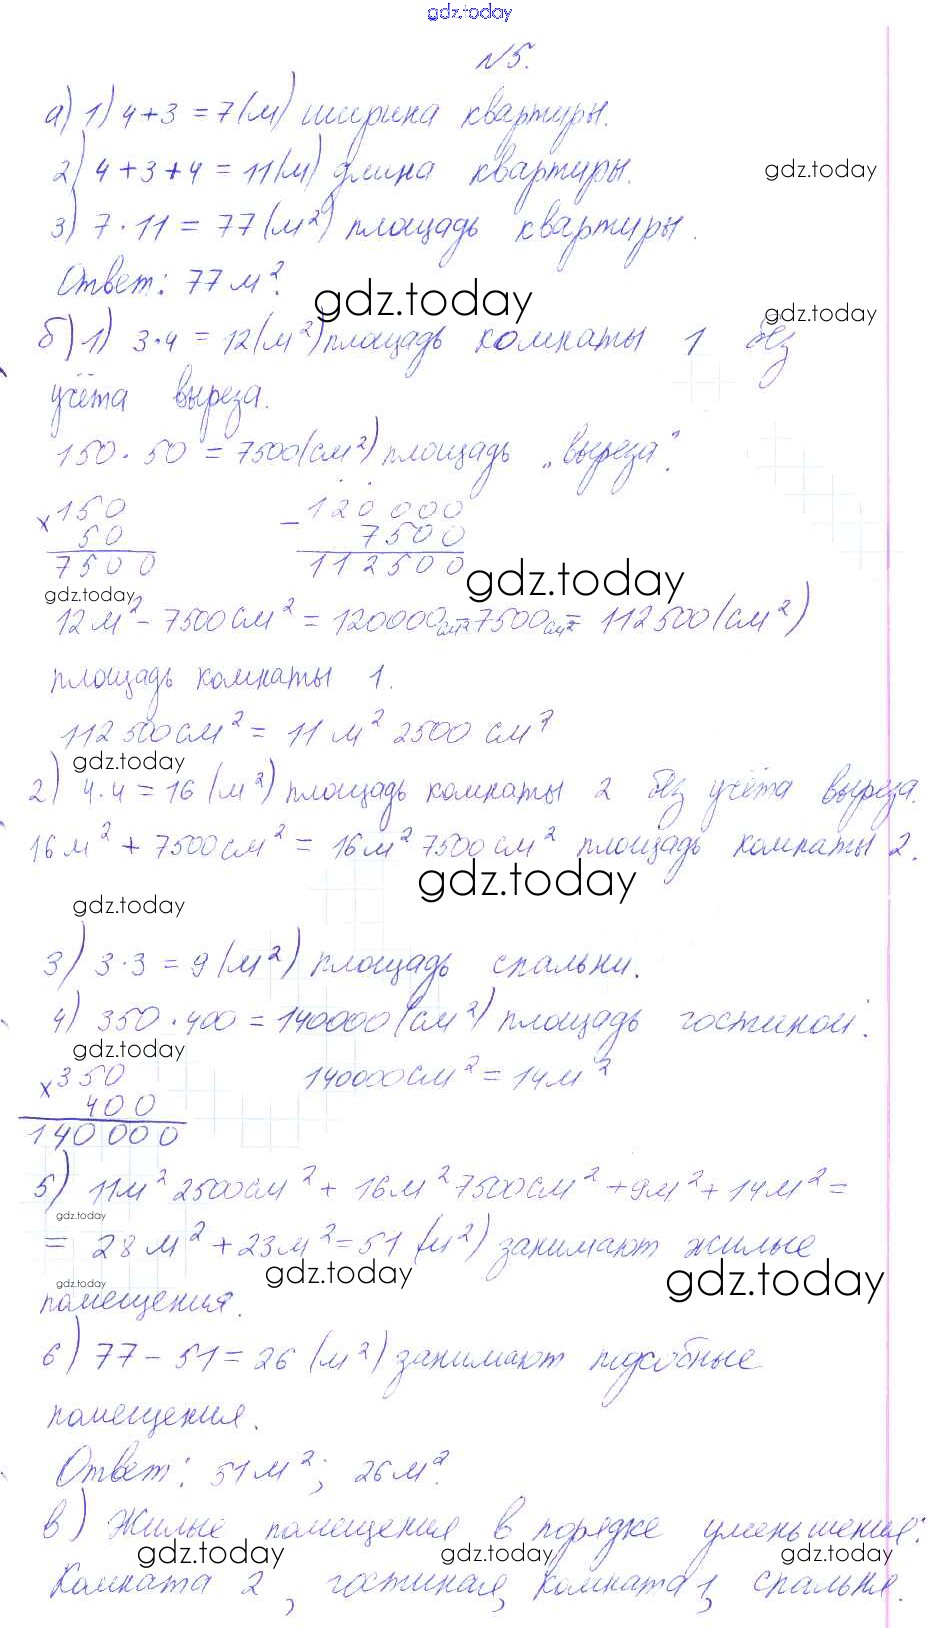 gdz.today
№5.
а) 1) 4+3 = 7(м) ширина квартиры.
2) 4+3+4 = 11(м) длина квартиры. gdz.today
3) 7·11 = 77(м²) площадь квартиры.
Ответ: 77м². gdz.today
gdz.today
б) 1) 3·4 = 12(м²) площадь комнаты 1 без
учёта выреза.
150·50 = 7500(см²) площадь „выреза“.
×150 −120 000
50 7500
7500 112500 gdz.today
gdz.today
12м² − 7500см² = 120000см² − 7500см² = 112500(см²)
площадь комнаты 1.
112500см² = 11м² 2500см²
gdz.today
2) 4·4 = 16(м²) площадь комнаты 2 без учёта выреза.
16м² + 7500см² = 16м² 7500см² площадь комнаты 2.
gdz.today
gdz.today
3) 3·3 = 9(м²) площадь спальни.
4) 350·400 = 140000(см²) площадь гостиной.
gdz.today
×350 140000см² = 14м²
400
140 000
5) 11м² 2500см² + 16м² 7500см² + 9м² + 14м² =
gdz.today
= 28м² + 23м² = 51(м²) занимают жилые
gdz.today gdz.today gdz.today
помещения.
6) 77 − 51 = 26(м²) занимают подсобные
помещения.
Ответ: 51м²; 26м².
в) Жилые помещения в порядке уменьшения:
gdz.today gdz.today gdz.today
Комната 2, гостиная, комната 1, спальня.